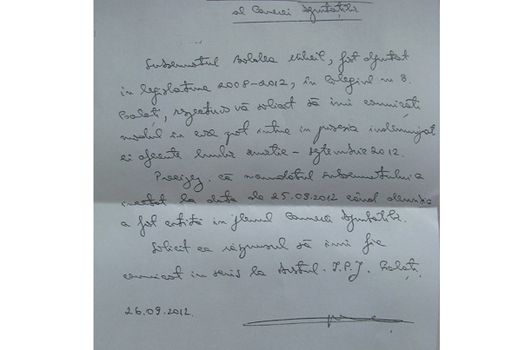 al Camerei Deputaților
Subsemnatul Boldea Mihail, fost deputat
în legislatura 2008-2012, în Colegiul nr. 3.
Galați, respectuos vă solicit să îmi comunicați
modul în care pot intra în posesia indemnizației
ei aferente lunilor - septembrie 2012.
Precizez că mandatul subsemnatului a
încetat la data de 25.09.2012 când
a fost citită în plenul Camerei Deputaților.
Solicit ca răspunsul să îmi fie
comunicat în scris la Arestul I.P.J. Galați.
26.09.2012.